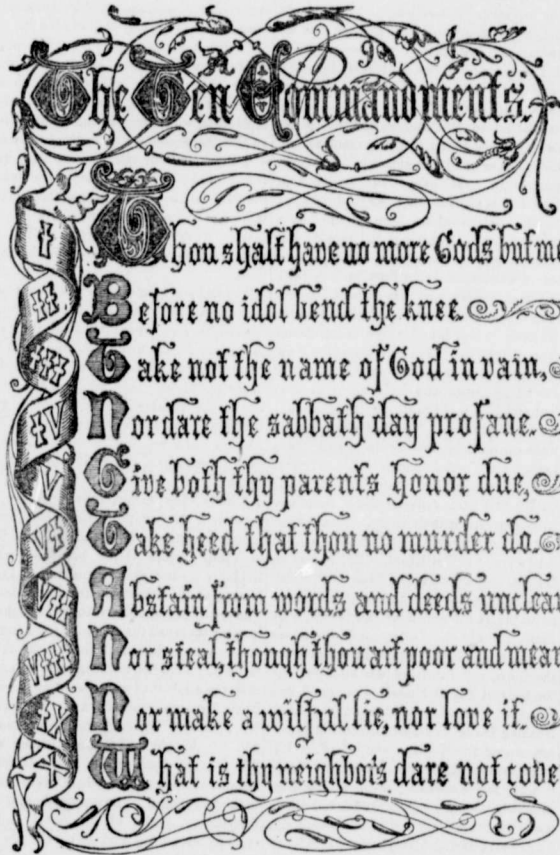 The Ten Commandments.
I
Thou shalt have no more Gods but me
II
Before no idol bend the knee.
III
Take not the name of God in vain,
IV
Nor dare the sabbath day profane.
V
Give both thy parents honor due,
VI
Take heed that thou no murder do.
VII
Abstain from words and deeds unclean
VIII
Nor steal, though thou art poor and mean
IX
Nor make a wilful lie, nor love it.
X
What is thy neighbors dare not cove